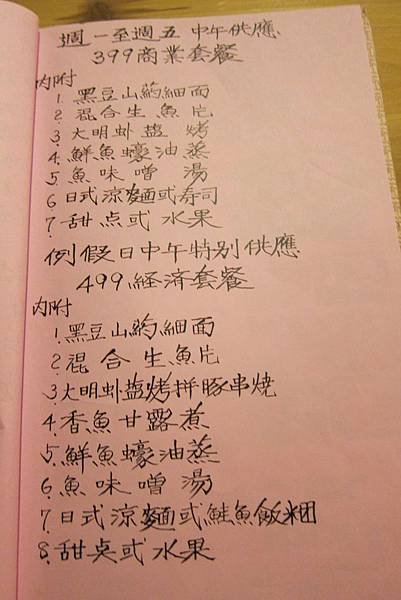 週一至週五 中午供應
399商業套餐
內附
1. 黑豆山葯細面
2. 混合生魚片
3. 大明虾盐烤
4. 鮮魚蠔油蒸
5. 魚味噌湯
6. 日式涼麵或寿司
7. 甜点或水果
例假日中午特別供應
499經済套餐
內附
1. 黑豆山葯細面
2. 混合生魚片
3. 大明虾盐烤拼豚串燒
4. 香魚甘露煮
5. 鮮魚蠔油蒸
6. 魚味噌湯
7. 日式涼麵或鮭魚飯糰
8. 甜点或水果